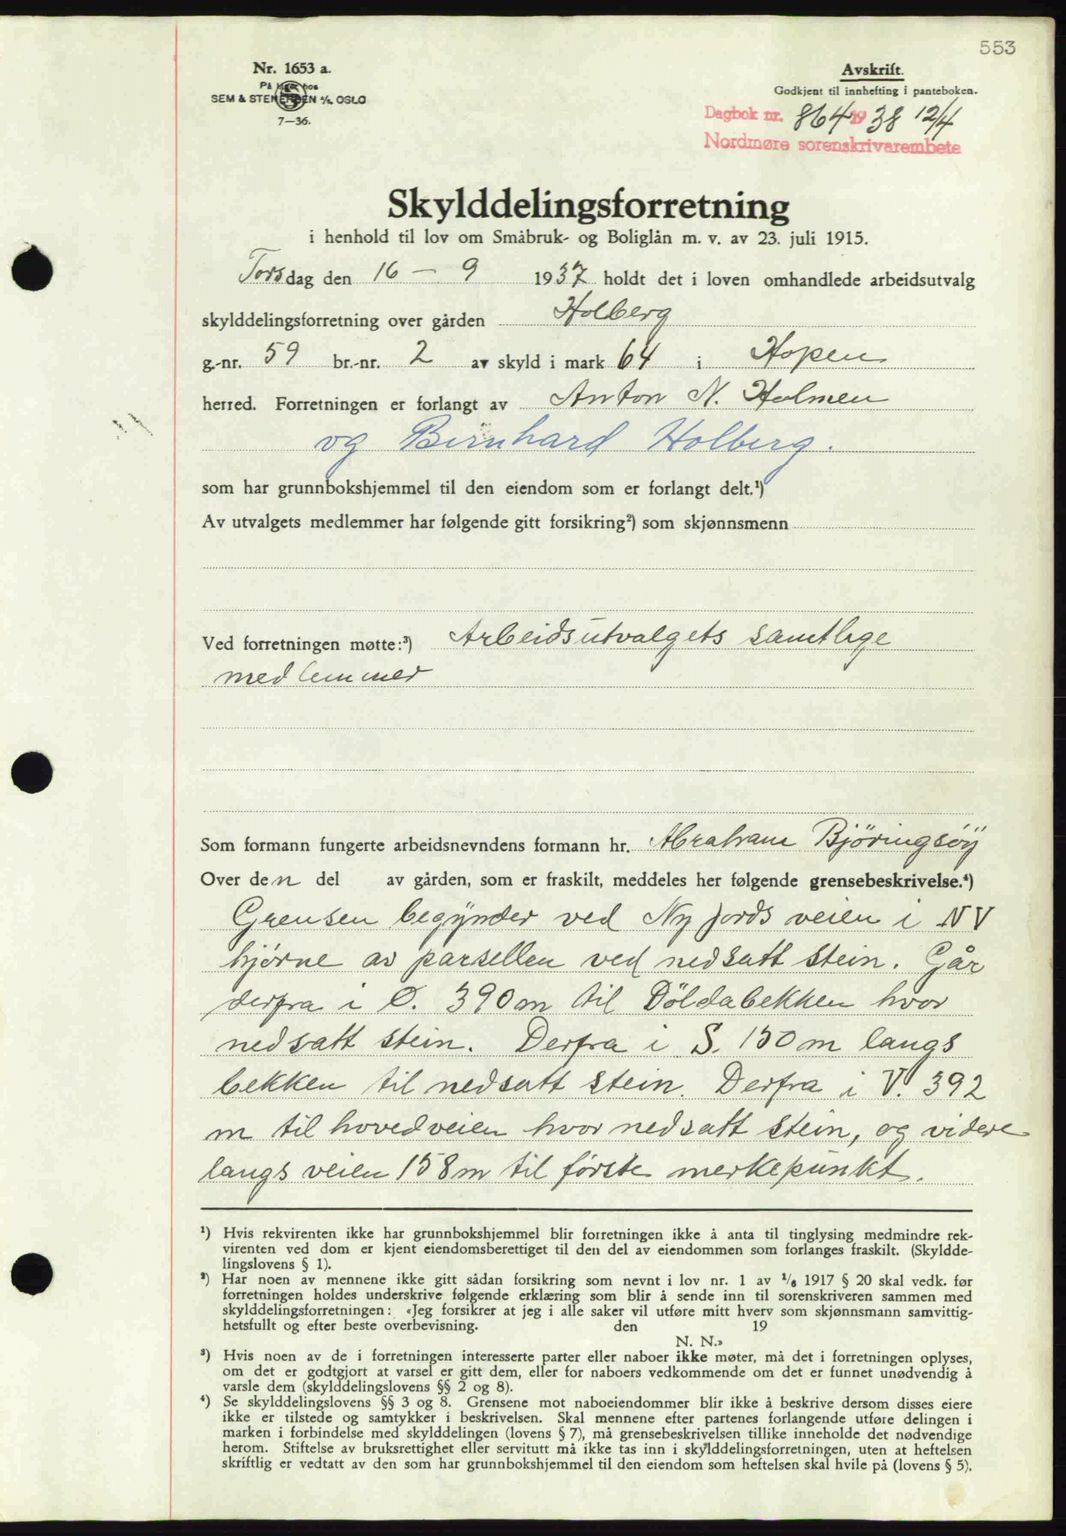 553
Nr. 1653 a.
På lager hos
SEM & STENERSEN A/S OSLO
7—36.
Avskrift.
Godkjent til innhefting i panteboken.
Dagbok nr. 864 1938 12/4
Nordmøre sorenskrivarembete
Skylddelingsforretning
i henhold til lov om Småbruk- og Boliglån m. v. av 23. juli 1915.
Torsdag den 16 – 9 1937 holdt det i loven omhandlede arbeidsutvalg
skylddelingsforretning over gården Holberg
g.-nr. 59 br.-nr. 2 av skyld i mark 64 i Hopen
herred. Forretningen er forlangt av Anton N. Holmen
og Bernhard Holberg.
som har grunnbokshjemmel til den eiendom som er forlangt delt.¹)
Av utvalgets medlemmer har følgende gitt forsikring²) som skjønnsmenn
Ved forretningen møtte:³) Arbeidsutvalgets samtlige
medlemmer
Som formann fungerte arbeidsnevndens formann hr. Abraham Björingsöy
Over den del av gården, som er fraskilt, meddeles her følgende grensebeskrivelse.⁴)
Grensen begynder ved Nyjords veien i NV
hjørne av parsellen ved nedsatt stein. Går
derfra i Ø. 390 m til Döldabekken hvor
nedsatt stein. Derfra i S. 150 m langs
bekken til nedsatt stein. Derfra i V. 392
m til hovedveien hvor nedsatt stein, og videre
langs veien 158 m til første merkepunkt.
¹) Hvis rekvirenten ikke har grunnbokshjemmel blir forretningen ikke å anta til tinglysing medmindre rek-
virenten ved dom er kjent eiendomsberettiget til den del av eiendommen som forlanges fraskilt. (Skyldde-
lingslovens § 1).
²) Har noen av mennene ikke gitt sådan forsikring som nevnt i lov nr. 1 av ¹/₆ 1917 § 20 skal vedk. før
forretningen holdes underskrive følgende erklæring som blir å sende inn til sorenskriveren sammen med
skylddelingsforretningen: «Jeg forsikrer at jeg i alle saker vil utføre mitt hverv som skjønnsmann samvittig-
hetsfullt og efter beste overbevisning. den 19
N. N.»
³) Hvis noen av de i forretningen interesserte parter eller naboer ikke møter, må det i forretningen oplyses,
om det er godtgjort at varsel er gitt dem, eller for naboers vedkommende om det er funnet unødvendig å
varsle dem (skylddelingslovens §§ 2 og 8).
⁴) Se skylddelingslovens §§ 3 og 8. Grensene mot naboeiendommer blir ikke å beskrive dersom disses eiere
ikke er tilstede og samtykker i beskrivelsen. Skal mennene efter partenes forlangende utføre delingen i
marken i forbindelse med skylddelingen (lovens § 7), må grensebeskrivelsen tillike inneholde det nødvendige
herom. Stiftelse av bruksrettighet eller servitutt må ikke tas inn i skylddelingsforretningen, uten at heftelsen
skriftlig er vedtatt av den som har grunnbokshjemmel til den eiendom som heftelsen skal hvile på (lovens § 5).